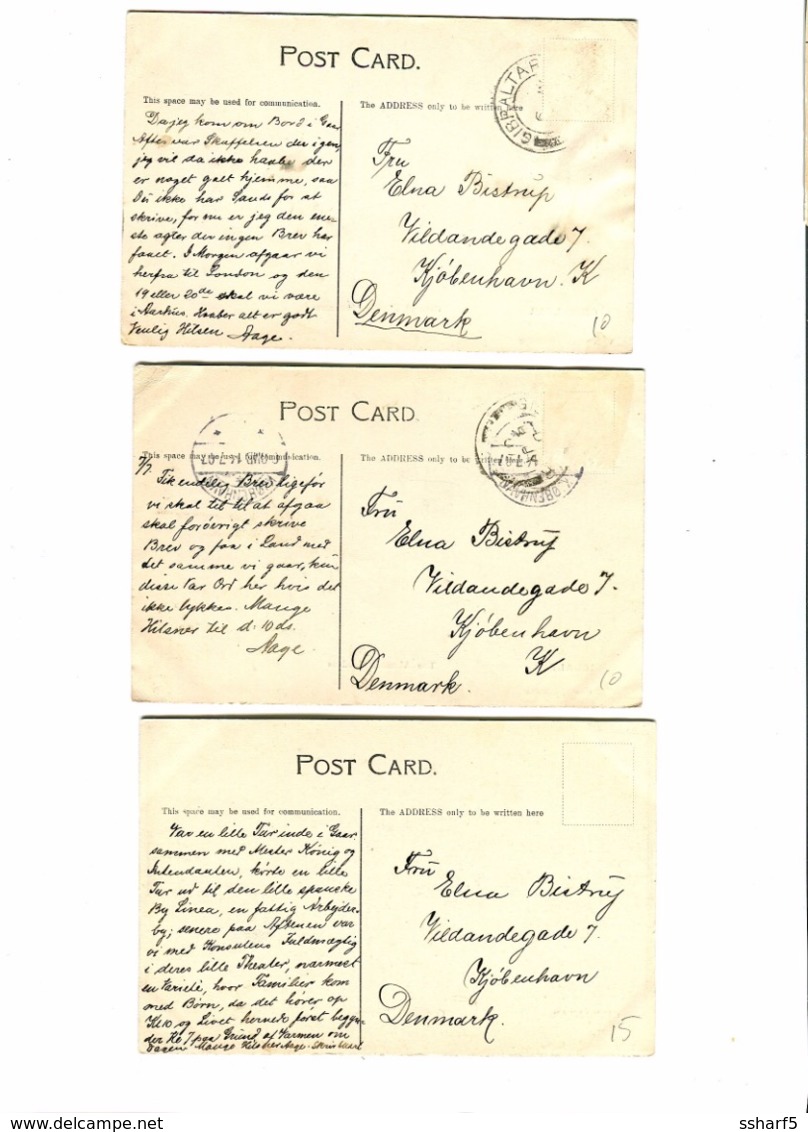 POST CARD.
GIBRALTAR
This space may be used for communication.
The ADDRESS only to be written here
Da jeg kom om Bord i Gaar
Aftes var Skuffelsen der igen,
jeg vil da ikke haabe der
er noget galt hjemme, saa
Du ikke har Sands for at
skrive, for nu er jeg den ene-
ste agter der ingen Brev har
faaet. I Morgen afgaar vi
herfra til London og den
19 eller 20de skal vi være
i Aarhus. Haaber alt er godt
Venlig Hilsen Aage.
Fru
Elna Bistrup
Vildandegade 7.
Kjøbenhavn. K
Denmark
10
POST CARD.
This space may be used for communication.
7/7. Fik endelig Brev ligefør
vi skal til at afgaa
skal forøvrigt skrive
Brev og faa i Land med
det samme vi gaar, kun
disse Par Ord her hvis det
ikke lykkes. Mange
Hilsner til d: 10 ds.
Aage.
Frü
Elna Bistrup
Vildandegade 7.
Kjøbenhavn
K
Denmark.
10
POST CARD.
This space may be used for communication.
The ADDRESS only to be written here
Var en lille Tur inde i Gaar
sammen med Mester König og
Intendanten, kørte en lille
Tur ud til den lille spanske
By Linea, en fattig Arbejder-
by; senere paa Aftenen var
vi med Konsulens Fuldmægtig
i deres lille Theater, nærmest
en Varieté, hvor Familier kom
med Børn, da det hører op
Kl 10 og Livet hernede først begyn-
der Kl 7 paa Grund af Varmen om
Dagen Mange Hilsner Aage.
Frü
Elna Bistrup
Vildandegade 7.
Kjøbenhavn
Denmark.
15
ssharf5